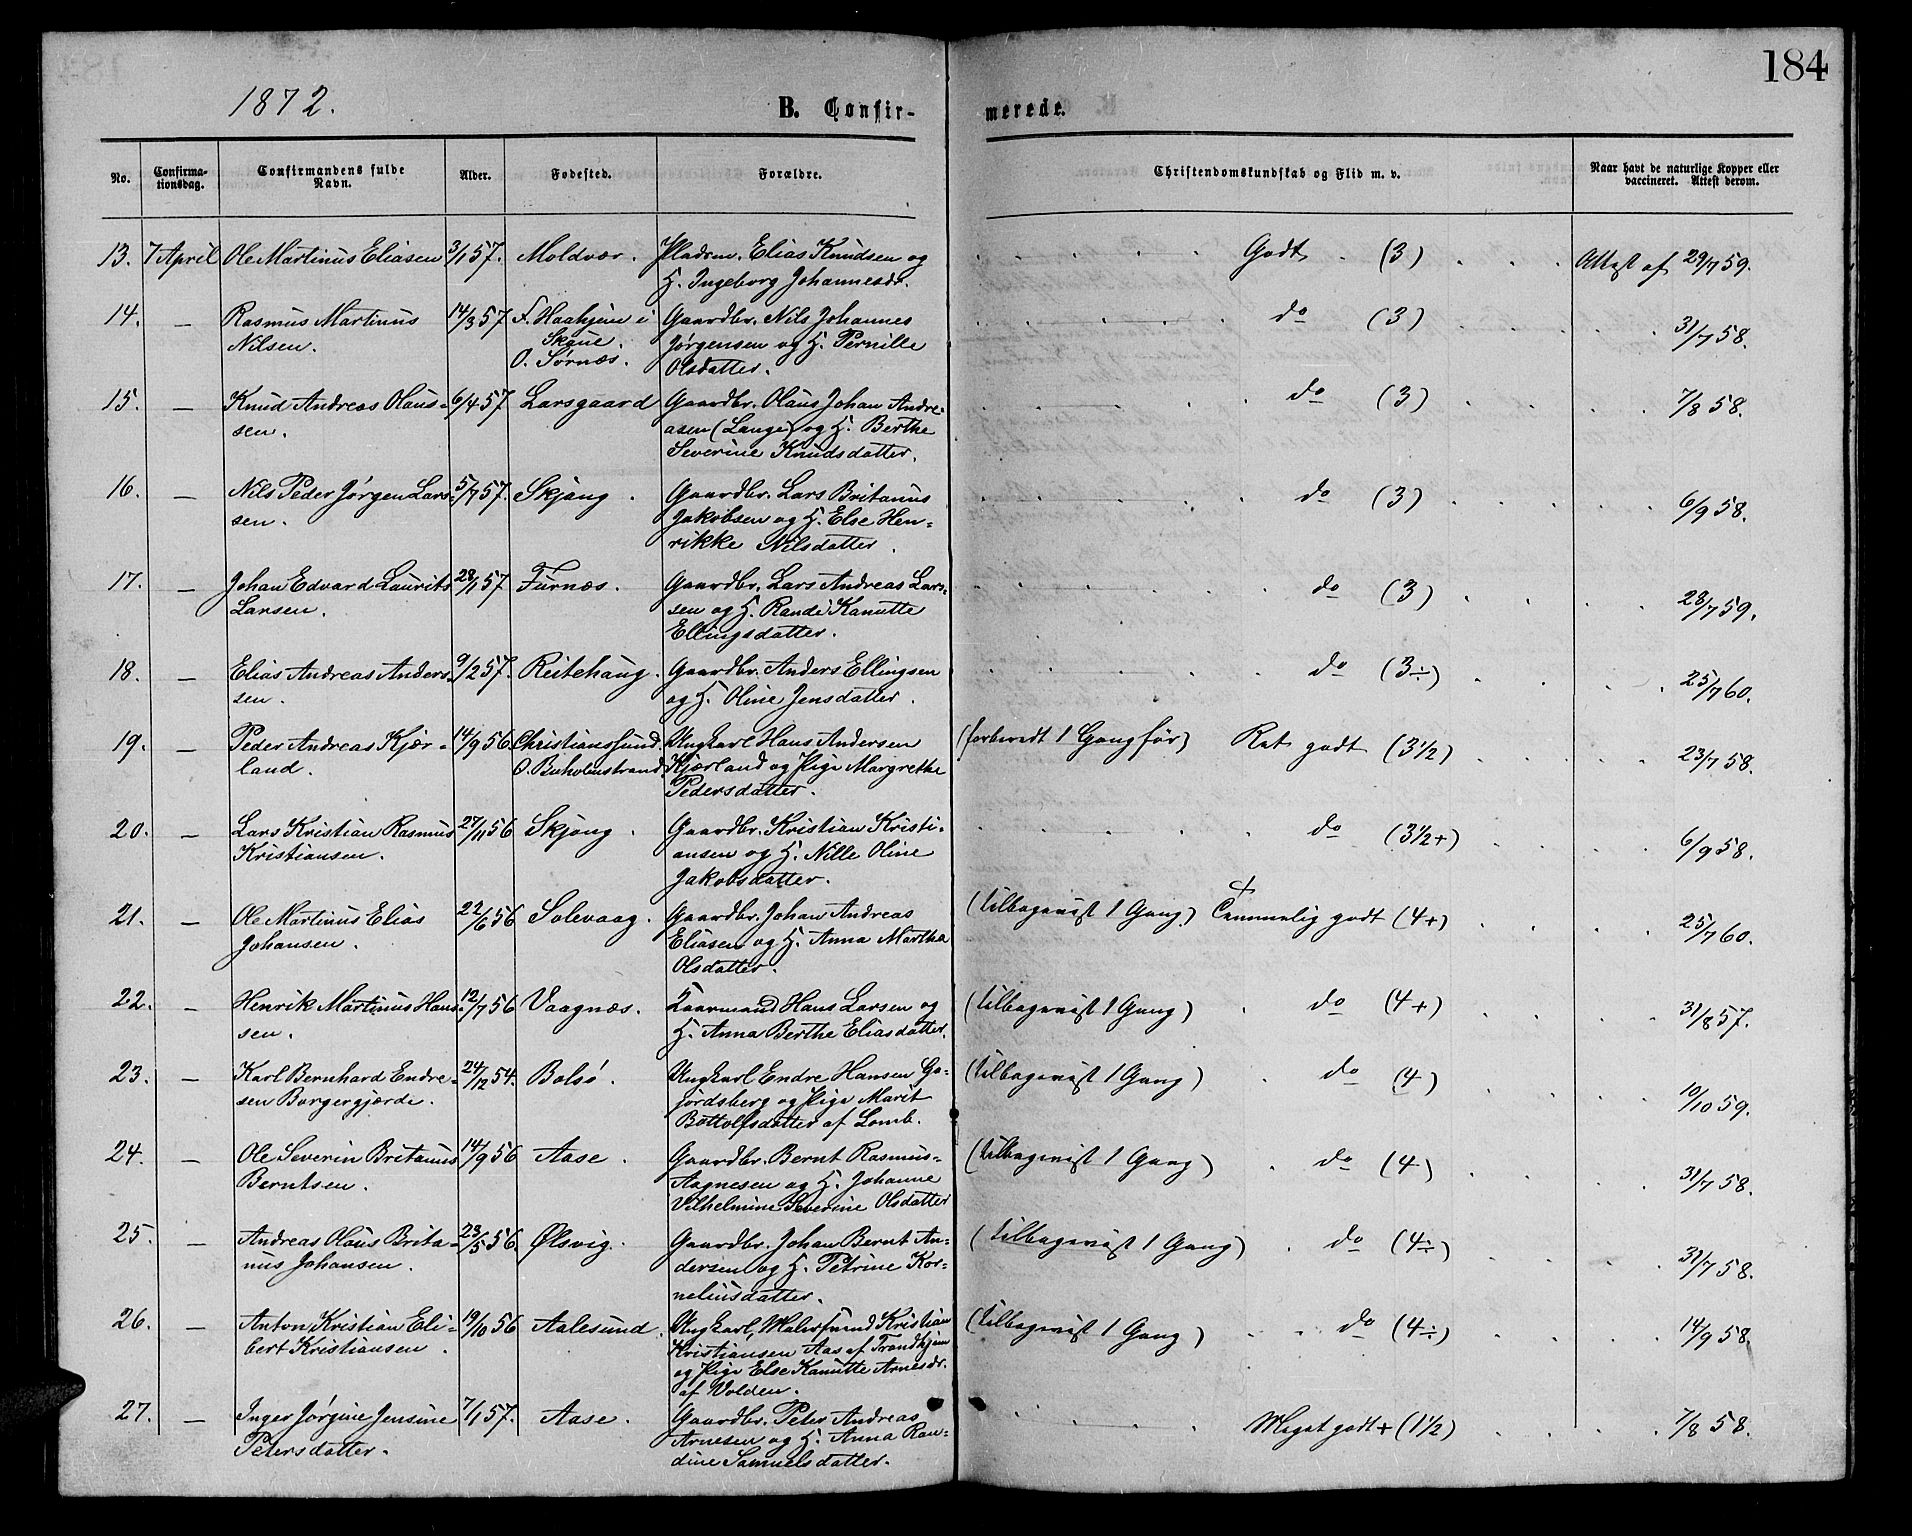 184
1872.
B. Confir-
merede.
No.
Confirma-
tionsdag.
Confirmandens fulde
Navn.
Alder.
Fødested.
Forældre.
Christendomskundskab og Flid m. v.
Naar havt de naturlige Kopper eller
vaccineret. Attest derom.
13. 7 April Ole Martinus Eliasen 3/1 57. Moldvær. Pladsm. Elias Knudsen og Godt (3) Attest af 29/7 59.
H. Ingeborg Johannesdr.
14. — Rasmus Martinus 14/3 57 F. Haahjem i Gaardbr. Nils Johannes do (3) 31/7 58.
Nilsen. Skaue. Jørgensen og H. Pernille
O. Sørnæs. Olsdatter.
15. — Knud Andreas Olaus- 6/4 57 Larsgaard Gaardbr. Olaus Johan Andre- do (3) 7/8 58.
sen. asen (Lange) og H. Berthe
Severine Knudsdatter.
16. — Nils Peder Jørgen Lars- 5/7 57. Skjong. Gaardbr. Lars Britanus do (3) 6/9 58.
sen. Jakobsen og H. Else Hen-
rikke Nilsdatter.
17. — Johan Edvard Laurits 28/1 57 Furnæs. Gaardbr. Lars Andreas Lars- do (3) 28/7 59.
Larsen. sen og H. Rande Kanutte
Ellingsdatter.
18. — Elias Andreas Anders- 9/2 57. Reitehaug. Gaardbr. Anders Ellingsen do (3÷) 25/7 60.
sen. og H. Oline Jensdatter.
19. — Peder Andreas Kjær- 14/9 56. Christianssund. Ungkarl Hans Andersen (forberedt 1 Gang før) Ret godt (3 1/2) 23/7 58.
land. O. Buholmstrand. Kjærland og Pige Margrethe
Pedersdatter.
20. — Lars Kristian Rasmus 27/11 56 Skjong. Gaardbr. Kristian Kristi- do (3 1/2+) 6/9 58.
Kristiansen. ansen og H. Nille Oline
Jakobsdatter.
21. — Ole Martinus Elias 22/6 56 Solevaag. Gaardbr. Johan Andreas (tilbagevist 1 Gang) Temmelig godt (4+) 25/7 60.
Johansen. Eliasen og H. Anna Martha
Olsdatter.
22. — Henrik Martinus Hans- 12/7 56 Vaagnæs. Kaarmand Hans Larsen og (tilbagevist 1 Gang) do (4+) 31/8 57.
sen. H. Anna Berthe Eliasdatter.
23. — Karl Bernhard Endre- 24/12 54. Bolsø. Ungkarl Endre Hansen Ga- (tilbagevist 1 Gang) do (4) 10/10 59.
sen Borgergjærde. jordsberg og Pige Marit
Bottolfsdatter af Lomb.
24. — Ole Severin Britanus 14/9 56 Aase. Gaardbr. Bernt Rasmus- (tilbagevist 1 Gang) do (4) 31/7 58.
Berntsen. Aagnesen og H. Johanne
Vilhelmine Severine Olsdatter
25. — Andreas Olaus Brita- 23/5 56. Ølsvig. Gaardbr. Johan Bernt An- (tilbagevist 1 Gang) do (4÷) 31/7 58.
nus Johansen. dersen og H. Petrine Kor-
neliusdatter.
26. — Anton Kristian Eli- 19/10 56 Aalesund. Ungkarl, Malersvend Kristian (tilbagevist 1 Gang) do (4÷) 14/9 58.
bert Kristiansen. Kristiansen Aas af Trondhjem
og Pige Else Kanutte Arnesdr.
af Volden.
27. — Inger Jørgine Jensine 7/1 57. Aase. Gaardbr. Peter Andreas Meget godt + (1 1/2) 7/8 58.
Petersdatter. Arnesen og H. Anna Ran-
dine Samuelsdatter.